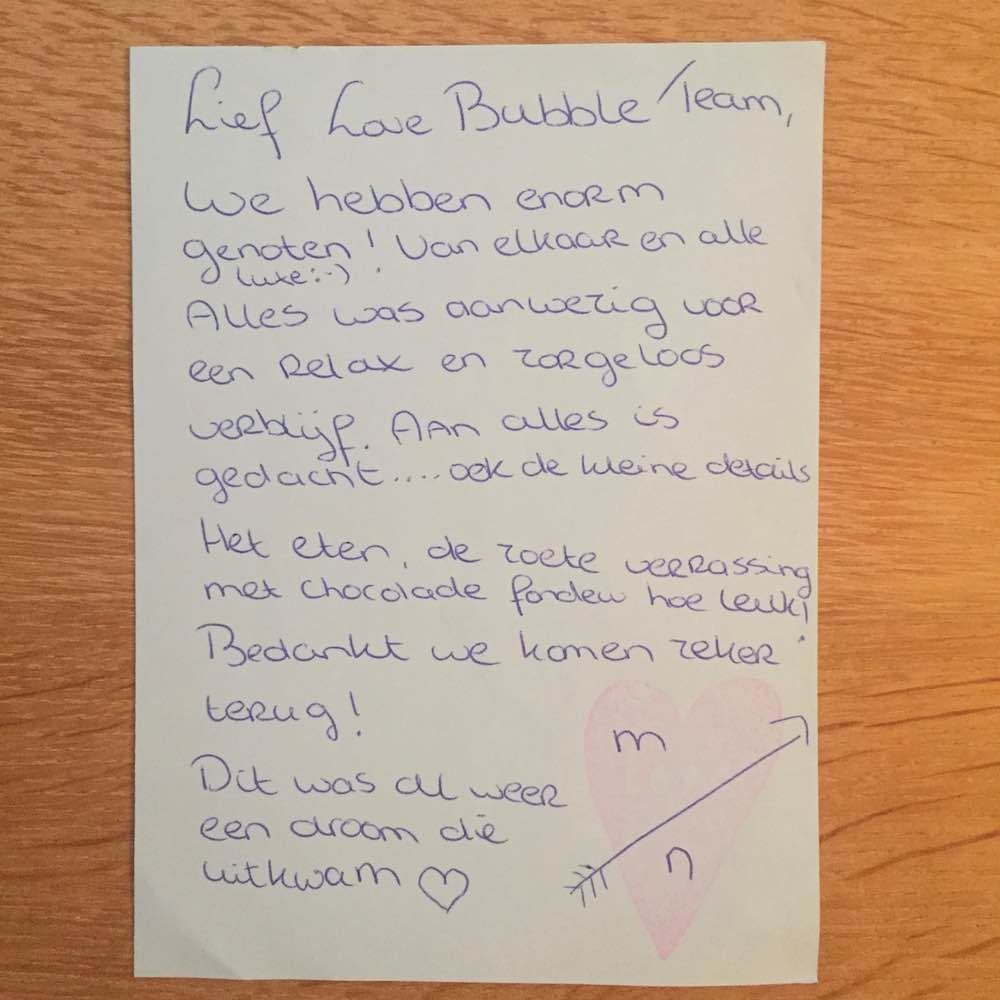 Lief Love Bubble Team,
We hebben enorm
genoten! Van elkaar en alle
luxe :-)
Alles was aanwezig voor
een relax en zorgeloos
verblijf. Aan alles is
gedacht.... ook de kleine details
Het eten, de zoete verrassing
met chocolade fondew hoe leuk!
Bedankt we komen zeker
terug!
Dit was al weer
een droom die
uitkwam ♡
m
n